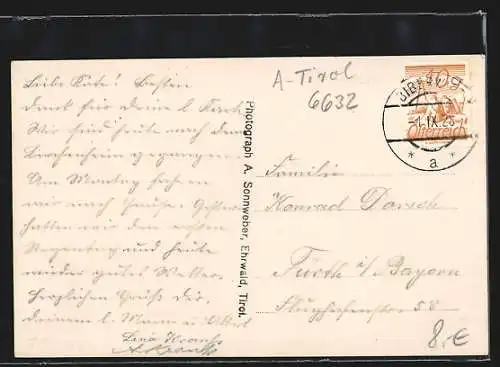 Liebe Käte! Besten
Dank für deine l. Karte
Wir sind heute nach dem
gegangen.
Am Montag fahren
wir nach Hause. Gestern
hatten wir den ersten
Regentag und heute
wieder gutes Wetter.
Herzlichen Gruß dir,
deinem l. Mann u.
Lina Krauß
A. Krauß
Photograph A. Sonnweber, Ehrwald, Tirol.
A-Tirol
6632
10 g
Österreich
IX. 25
* a *
Familie
Konrad Dorsch
Fürth i/ Bayern
58
8,-€